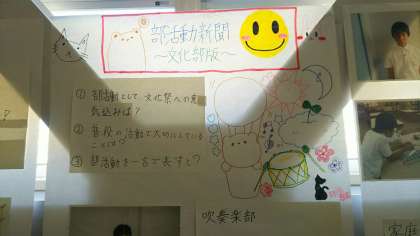 部活動新聞
～文化部版～
① 部活動として文化祭への意
気込みは?
② 普段の活動で大切にしている
ことは?
③ 部活動を一言で表すと?
吹奏楽部
家庭